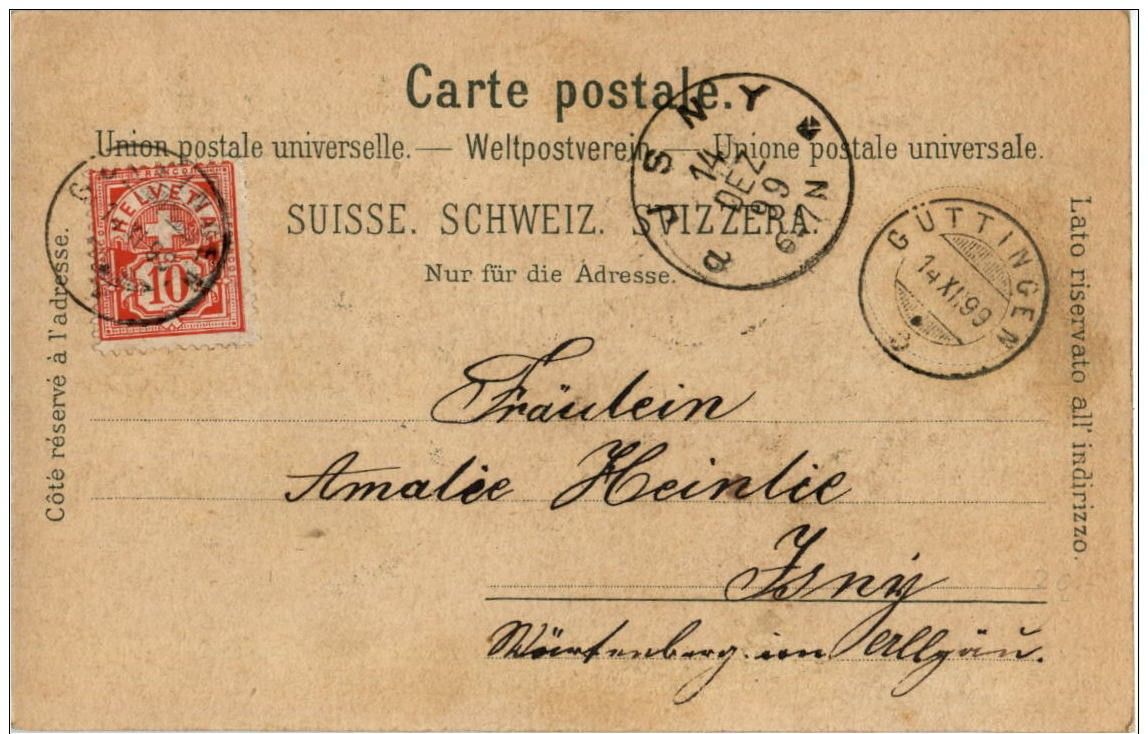 Carte postale.
Union postale universelle. — Weltpostverein — Unione postale universale.
SUISSE. SCHWEIZ. SVIZZERA.
Nur für die Adresse.
Côté réservé à l'adresse.
Lato riservato all' indirizzo.
FRANCO
HELVETIA
10
JSNY
14
DEZ
99
6-7N
a
GÜTTINGEN
14 XII 99
Fräulein
Amalie Heinlie
Isny
Würtenberg im Allgäu.